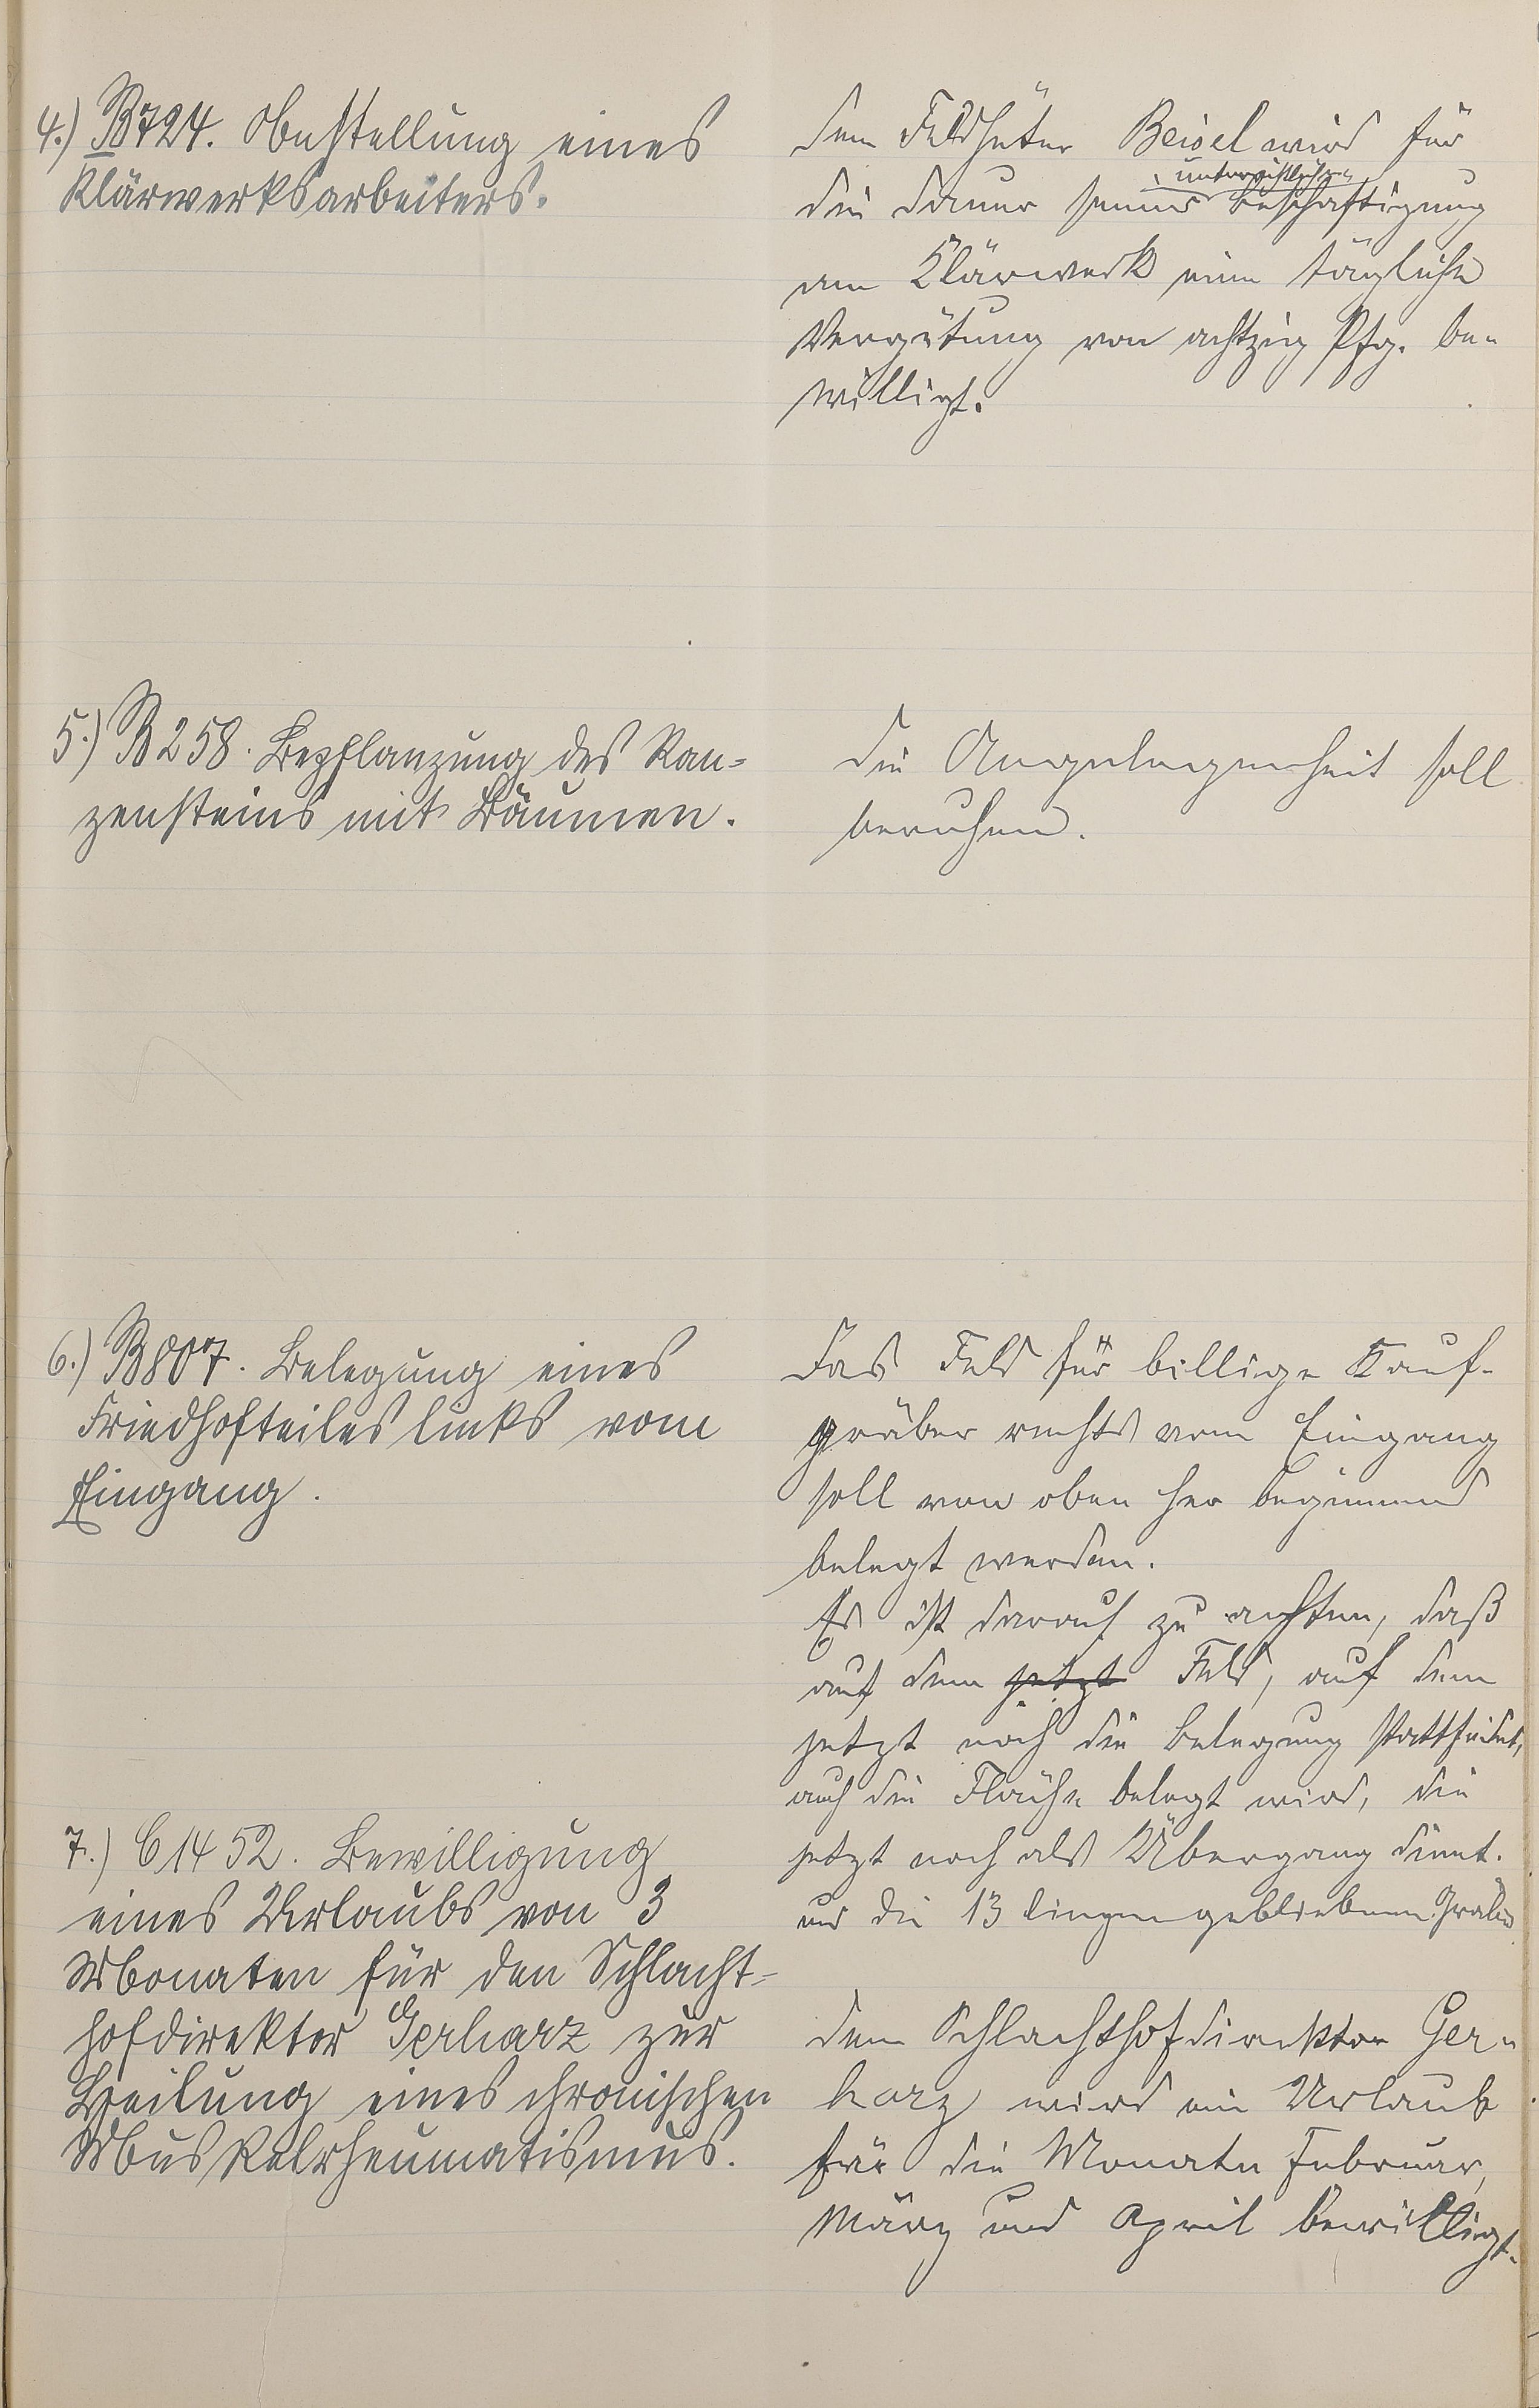 4.) B 724. Bestellung eines
Klärwerksarbeiters.
Dem Feldhüter Beisel wird für
die Dauer seiner Beschäftigung
am Klärwerk eine tägliche
Vergütung von achtzig Pfg. be-
willigt.
5.) B 258. Bepflanzung des Ran-
zensteins mit Bäumen.
Die Angelegenheit soll
beruhen.
6.) B 807. Belegung eines
Friedhofteiles links vom
Eingang.
Das Feld für billige Kauf-
gräber rechts vom Eingang
soll von oben her beginnend
belegt werden.
Es ist darauf zu achten, daß
auf dem jetzt Feld, auf dem
jetzt noch die Belegung stattfindet,
auch die Fläche belegt wird, die
jetzt noch als Übergang dient.
und die 13 liegengebliebenen Gräber
7.) C 1452. Bewilligung
eines Urlaubs von 3
Monaten für den Schlacht-
hofdirektor Gerharz zur
Heilung eines chronischen
Muskelrheumatismus.
Dem Schlachthofdirektor Ger-
harz wird ein Urlaub
für die Monate Februar,
März und April bewilligt.